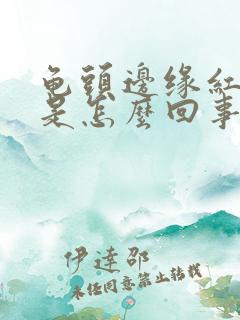 龟頭邊缘紅
是怎麼回事
伊達邵
未经同意禁止转载